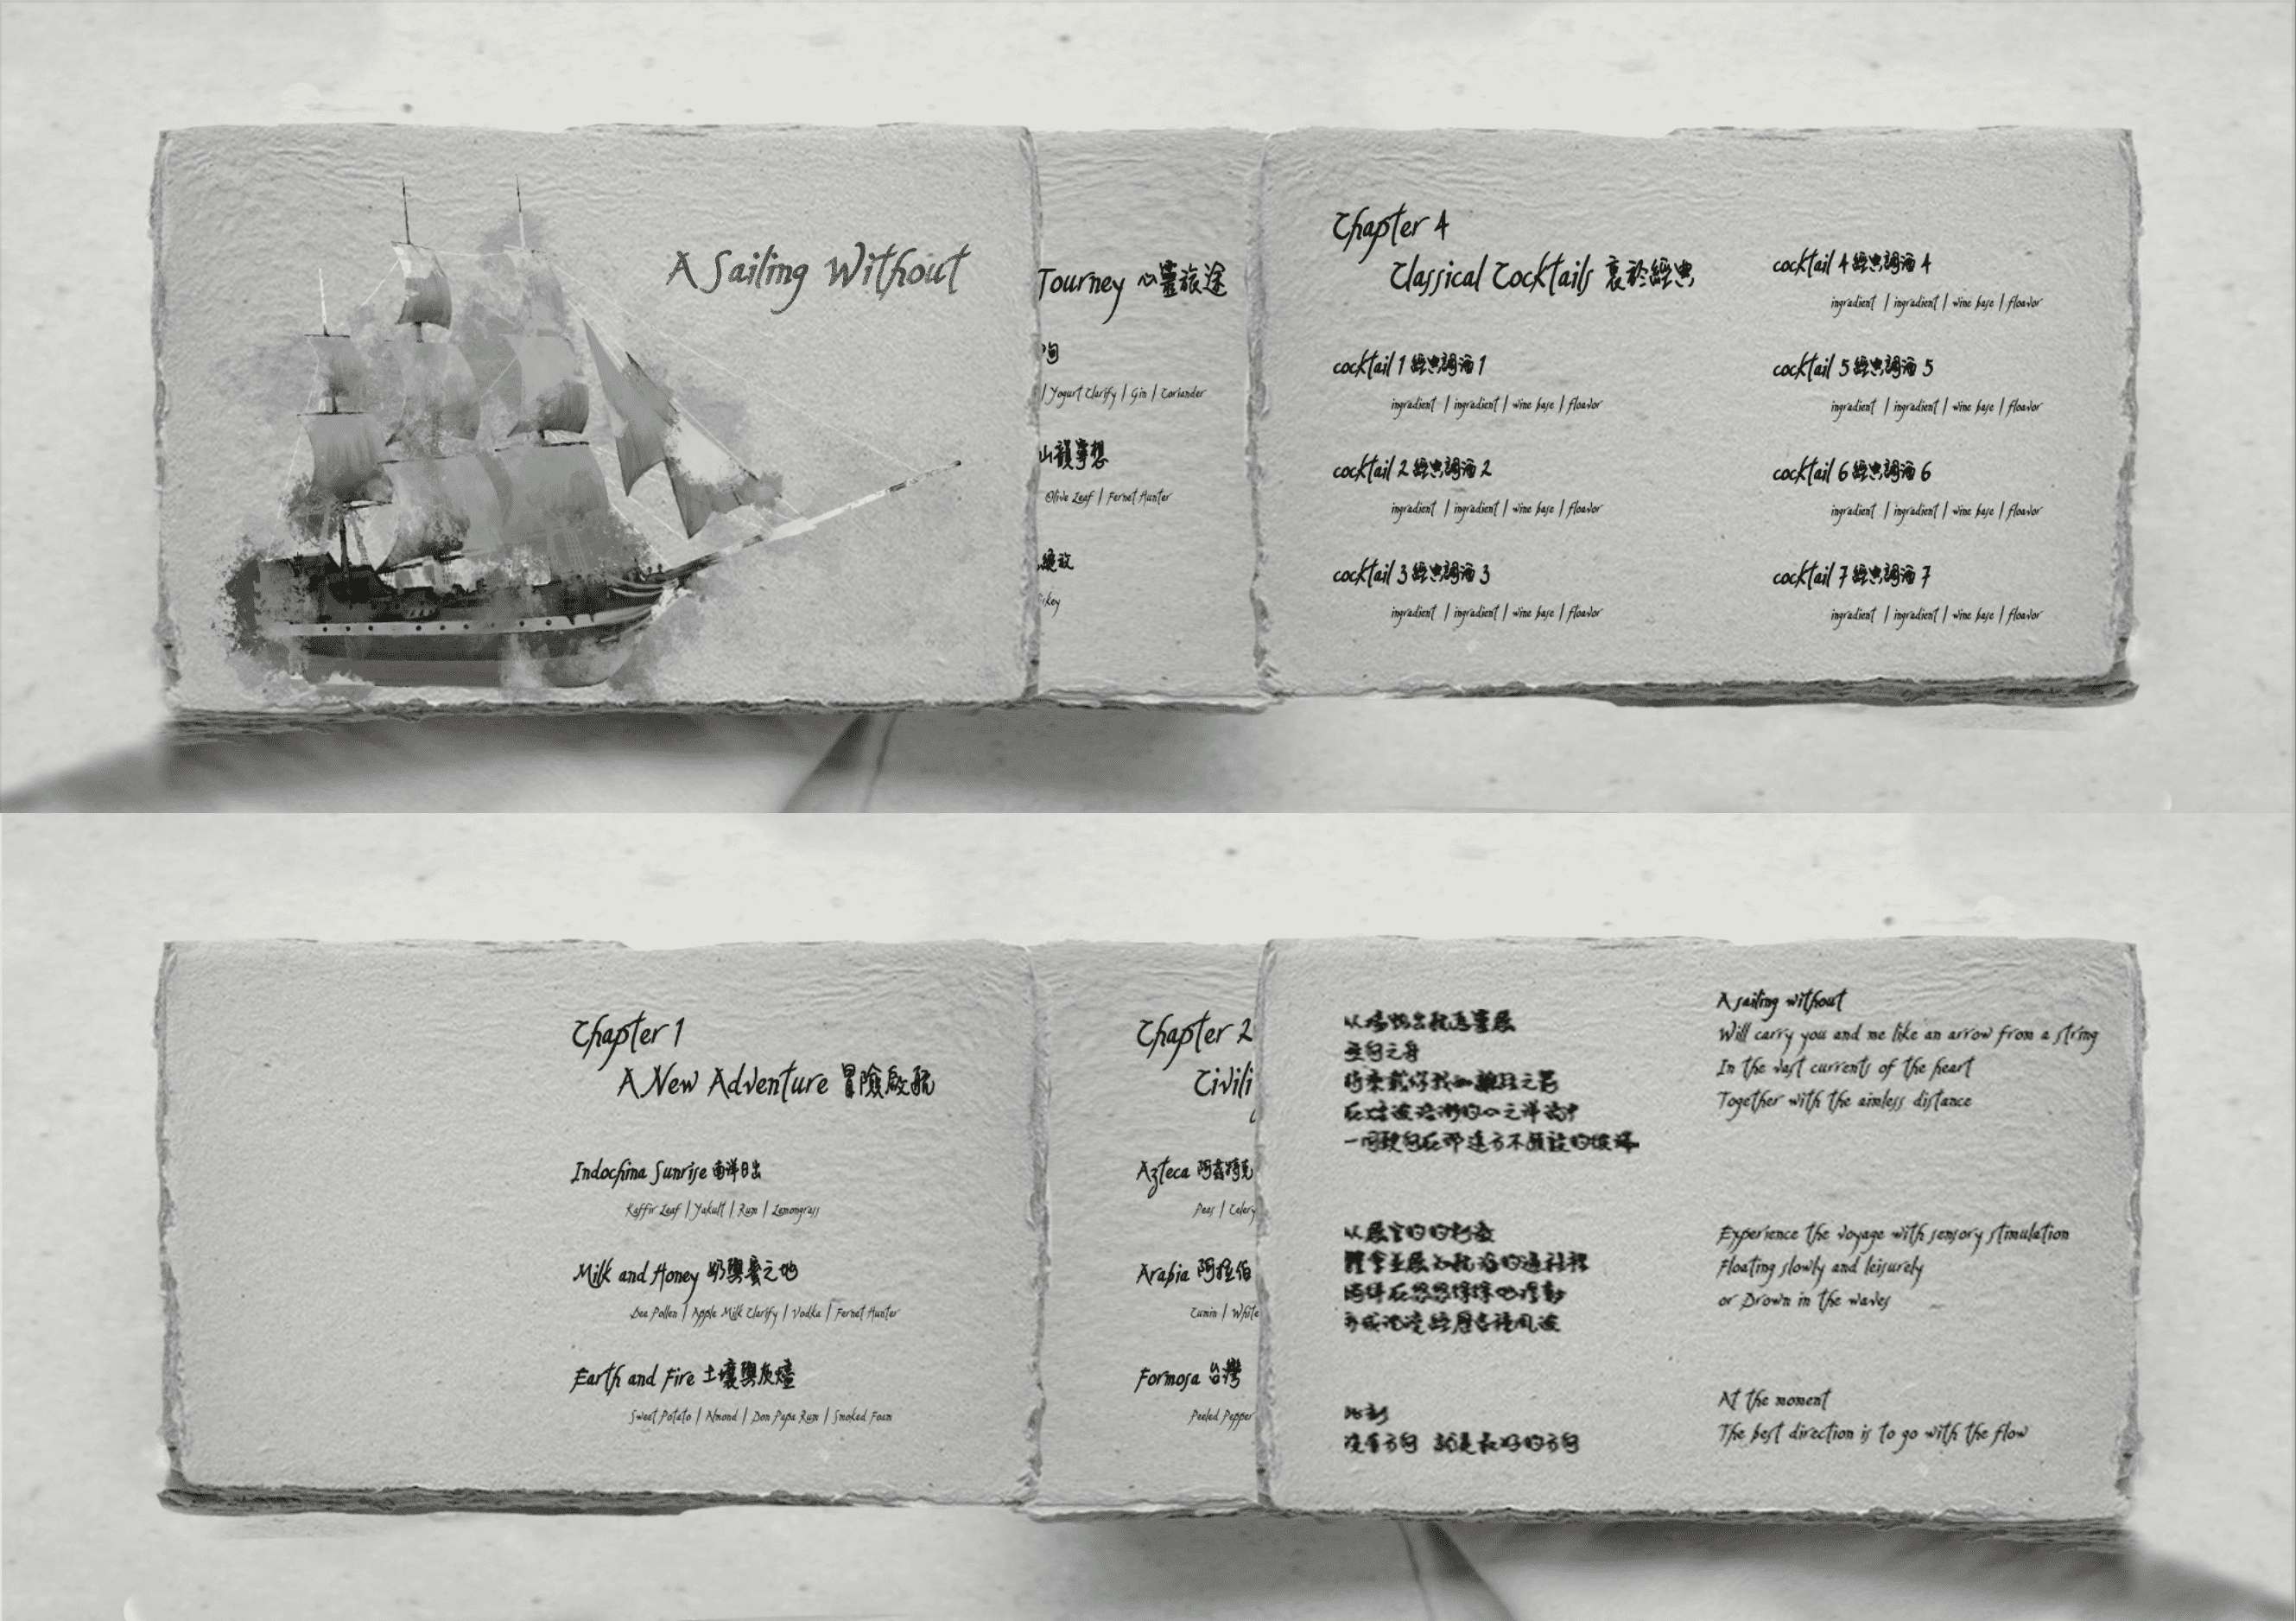 A Sailing Without
Tourney 心靈旅途
| Yogurt Clarify | Gin | Coriander
山韻夢想
Olive Leaf | Fernet Hunter
綻放
Chapter 4
Classical Cocktails 衷於經典
cocktail 1 經典調酒 1
ingredient | ingredient | wine base | floavor
cocktail 2 經典調酒 2
ingredient | ingredient | wine base | floavor
cocktail 3 經典調酒 3
ingredient | ingredient | wine base | floavor
cocktail 4 經典調酒 4
ingredient | ingredient | wine base | floavor
cocktail 5 經典調酒 5
ingredient | ingredient | wine base | floavor
cocktail 6 經典調酒 6
ingredient | ingredient | wine base | floavor
cocktail 7 經典調酒 7
ingredient | ingredient | wine base | floavor
Chapter 1
A New Adventure 冒險啟航
Indochina Sunrise 南洋日出
Kaffir Leaf | Yakult | Rum | Lemongrass
Milk and Honey 奶與蜜之地
Bee Pollen | Apple Milk Clarify | Vodka | Fernet Hunter
Earth and Fire 土壤與灰燼
Sweet Potato | Almond | Don Papa Rum | Smoked Foam
Chapter 2
Civili
Azteca 阿茲特克
Peas | Celery
Arabia 阿拉伯
Cumin | White
Formosa 台灣
Peeled Pepper
無向之舟
此刻
沒有方向 就是最好的方向
A sailing without
Will carry you and me like an arrow from a string
In the vast currents of the heart
Together with the aimless distance
Experience the voyage with sensory stimulation
Floating slowly and leisurely
or Drown in the waves
At the moment
The best direction is to go with the flow